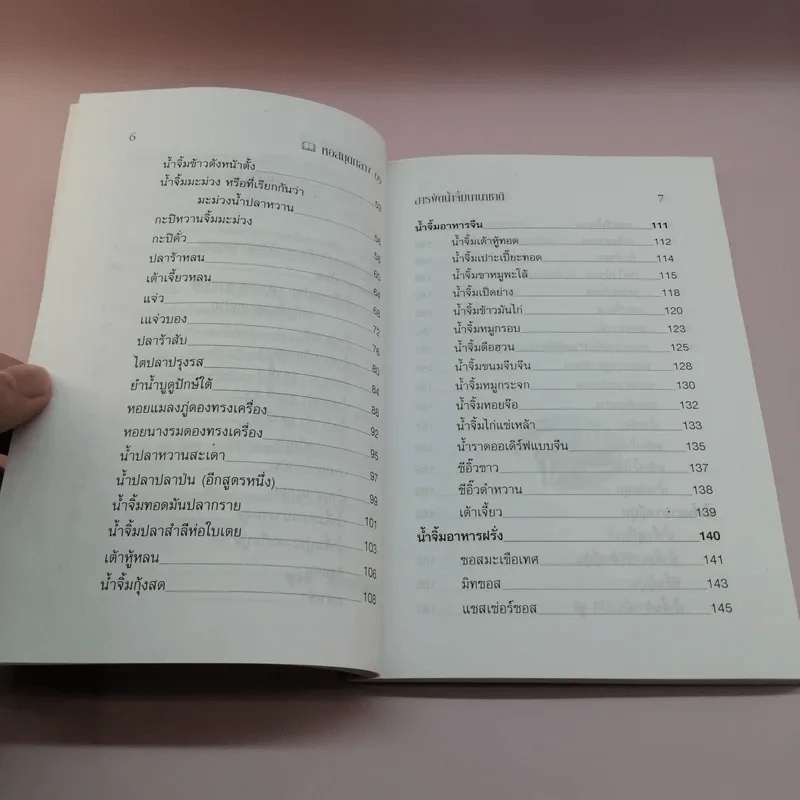 6
หอสมุดกลาง 09
น้ำจิ้มข้าวตังหน้าตั้ง
น้ำจิ้มมะม่วง หรือที่เรียกกันว่า
มะม่วงน้ำปลาหวาน
กะปิหวานจิ้มมะม่วง
กะปิคั่ว
ปลาร้าหลน
เต้าเจี้ยวหลน 60
แจ่ว 64
แจ่วบอง 68
ปลาร้าสับ 72
ไตปลาปรุงรส 76
ยำน้ำบูดูปักษ์ใต้ 80
หอยแมลงภู่ดองทรงเครื่อง 84
หอยนางรมดองทรงเครื่อง 88
น้ำปลาหวานสะเดา 92
น้ำปลาปลาป่น (อีกสูตรหนึ่ง) 95
น้ำจิ้มทอดมันปลากราย 97
น้ำจิ้มปลาสำลีห่อใบเตย 99
เต้าหู้หลน 101
น้ำจิ้มกุ้งสด 103
106
108
สารพัดน้ำจิ้มนานาชาติ 7
น้ำจิ้มอาหารจีน 111
น้ำจิ้มเต้าหู้ทอด 112
น้ำจิ้มเปาะเปี๊ยะทอด 114
น้ำจิ้มขาหมูพะโล้ 115
น้ำจิ้มเป็ดย่าง 118
น้ำจิ้มข้าวมันไก่ 120
น้ำจิ้มหมูกรอบ 123
น้ำจิ้มตือฮวน 125
น้ำจิ้มขนมจีบจีน 128
น้ำจิ้มหมูกระจก 130
น้ำจิ้มหอยจ๊อ 132
น้ำจิ้มไก่แช่เหล้า 133
น้ำราดออเดิร์ฟแบบจีน 135
ซีอิ๊วขาว 137
ซีอิ๊วดำหวาน 138
เต้าเจี้ยว 139
น้ำจิ้มอาหารฝรั่ง 140
ซอสมะเขือเทศ 141
มิทซอส 143
แชสเซ่อร์ซอส 145